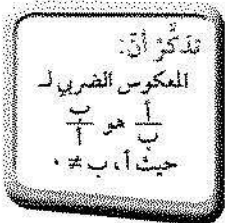 تذكَّرْ أنّ:
المعكوس الضربي لـ
أ/ب هو ب/أ
حيث أ، ب ≠ ٠